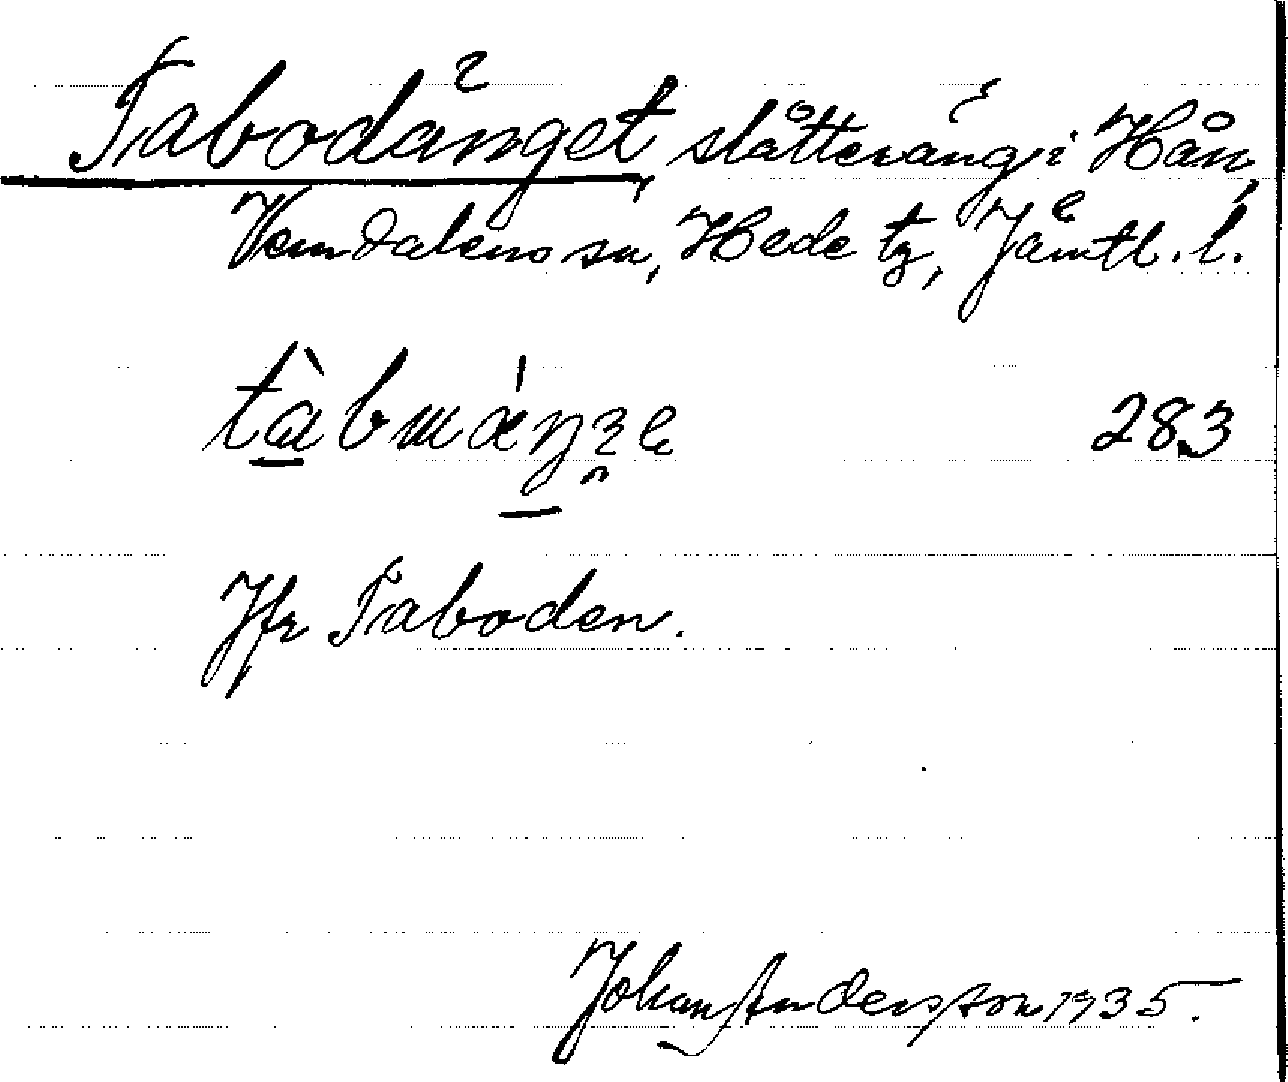 Tabodänget, slåtteräng i Hån,
Vemdalens sn, Hede tg, Jämtl. l.
283
Jfr Taboden.
Johan Andersson 1935.